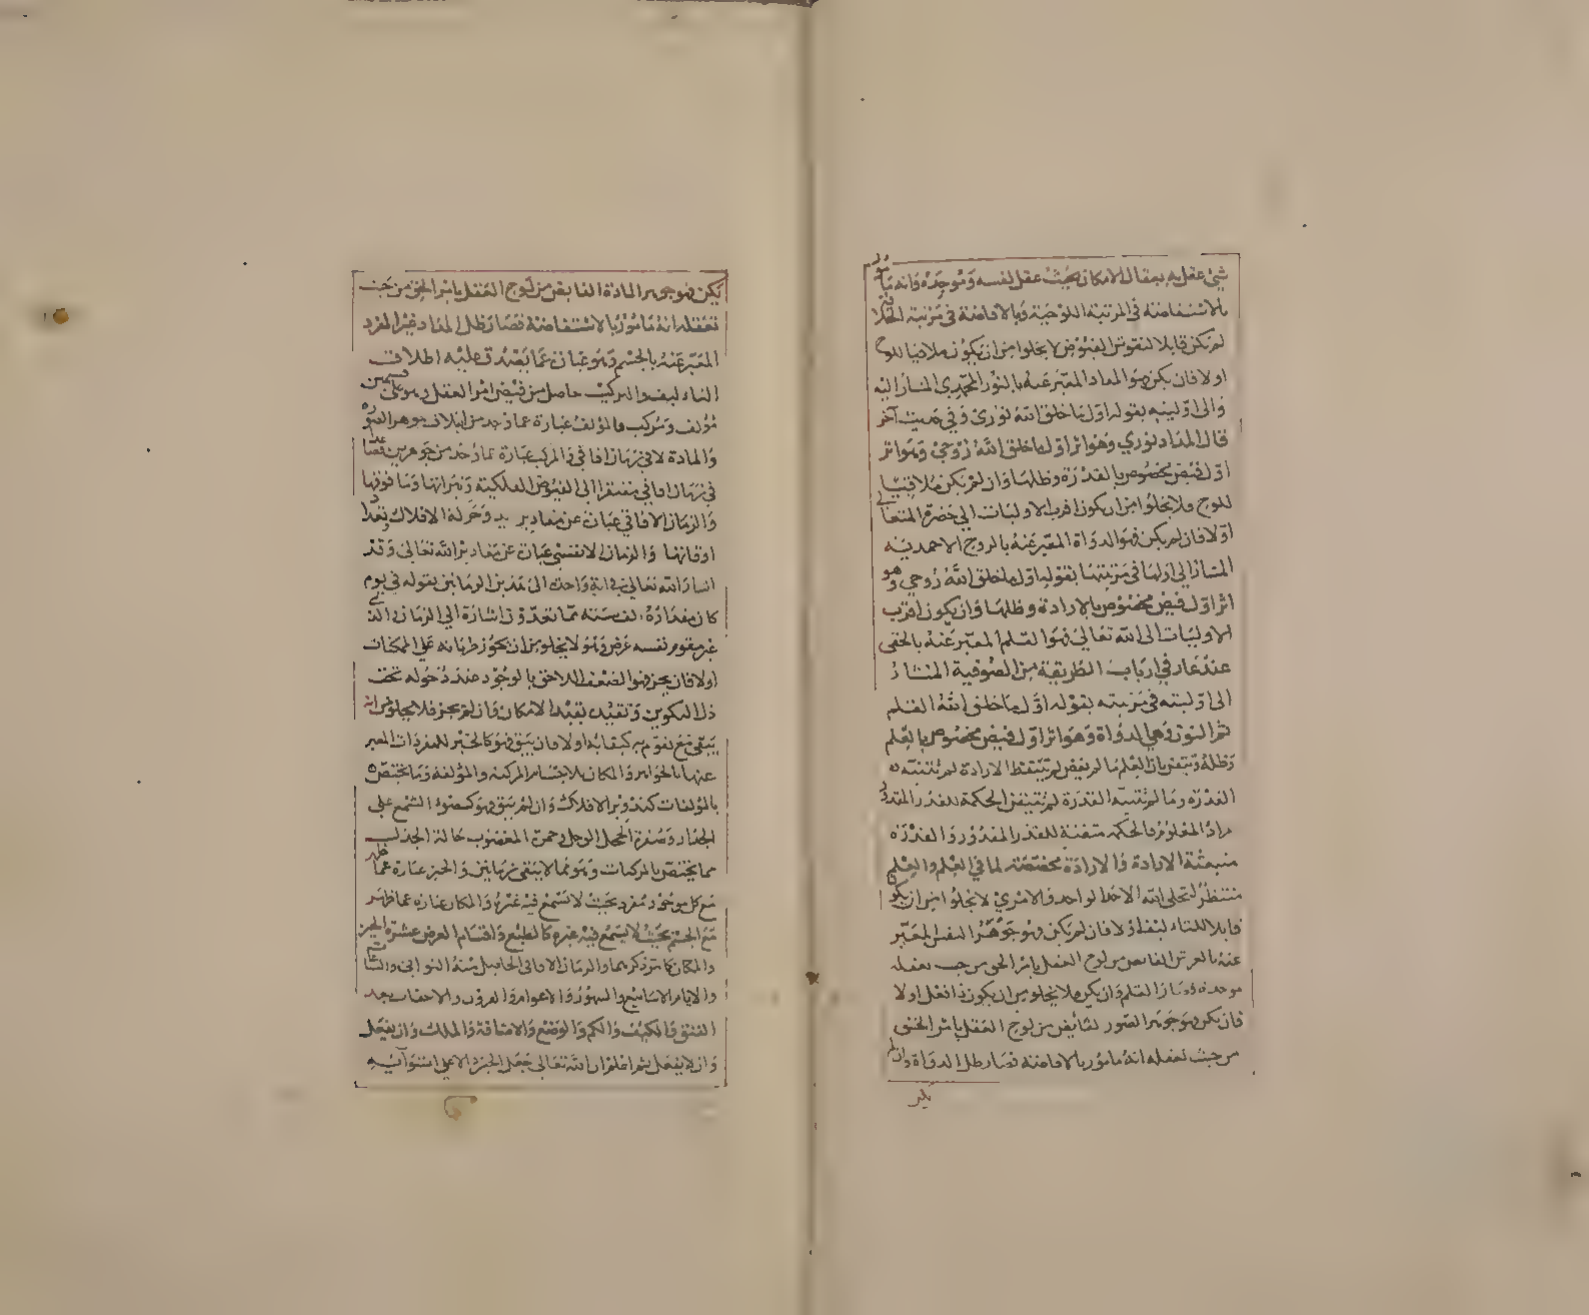 شئ عقل به بمقال الامكان بحيث عقل لنفسه وموجده وانه مأمور
بالاستفاضة في المرتبة اللوحية وبالافاضة في مرتبة
لم يكن قابلا لنقوش الفيوض لا يخلوا من ان يكون ملاقيا للوح
اولا فان يكن هو المداد المعبر عنه بالنور المحمدي المشار اليه
والى اوليته بقوله اول ما خلق الله نوري وفي حديث آخر
قال المداد نوري وهو اثر اول ما خلق الله روحي وهو اثر
اول فيض مخصوص بالقدرة وظلها وان لم يكن ملاقيا
للوح فلا يخلوا من ان يكون اقرب الاوليات الى حضرة المتعالى
اولا فان لم يكن فهو الدواة المعبر عنه بالروح الاحمدية
المشار الى اولها في مرتبتها بقوله اول ما خلق الله روحي وهو
اثر اول فيض مخصوص بالارادة وظلها وان يكون اقرب
الاوليات الى الله تعالى فهو القلم المعبر عنه بالخفي
عند عارفي ارباب الطريقة من الصوفية المشار
الى اوليته في مرتبته بقوله اول ما خلق الله القلم
ثم النون وهي الدواة وهو اثر اول فيض مخصوص بالعلم
وظله فان العلم ما لم يفض لم الارادة لم
القدرة وما لم القدرة لم الحكمة للقدر المقدر
مراد المعلوم فالحكمة متقنة للقدر المقدور والقدرة
منبعثة الارادة والارادة مخصصة لما في العلم والعلم
منتظر لتجلى الله الاحد الواحد فالامري لا يخلوا من ان يكون
قابلا للبناء لبقاء اولا فان لم يكن فهو جوهر النفس المعبر
عنه بالعرش الفايض من لوح العقل بامر الحق من حيث تعقله
موجده القلم وان يكن فلا يخلو من ان يكون ذا فعل اولا
فان يكن فهو جوهر الصور الفايض من لوح العقل بامر الحق
من حيث تعقله انه مامور بالافاضة فصار ظل الدواة وان لم
يكن فهو جوهر المادة الفايض من لوح العقل بامر الحق من حيث
تعقله انه مأمور بالاستفاضة فصار ظل المداد غير المفرد
المعبر عنه بالجسم وهو عبارة عما يصدق عليه اطلاق
البناء لبقاء التركيب حاصل من فيض امر العقل وهو على قسمين
مؤلف ومركب فالمؤلف عبارة عما وجد من ايلاف جوهر الصورة
والمادة لا في زمان افاقي والمركب عبارة عما وجد من جوهرين فصاعدا
في زمان افاقي مفتقرا الى الفيوض الفلكية ونيراتها وما فوقها
والزمان الافاقي عبارة عن مقادير وحركة الافلاك
اوقاتها والزمان الانفسي عبارة عن مقادير الله تعالى وقد
اشار الله تعالى في اية واحدة الى هذين الزمانين بقوله في يوم
كان مقداره الف سنة مما تعدون اشارة الى الزمان
غير مقوم نفسه عرض وهو لا يخلو من ان يجوز طريانه على الممكنات
اولا فان يجز فهو الضعف اللاحق بالوجود عند دخوله تحت
ذل التكوين وتقيده بقيد الامكان وان لم يجز فلا يخلو من انه
يبقى مع تقومه اولا فان يبق فهو كالحيز للمفردات المعبر
عنها بالجواهر والمكان للاجسام المركبة والمؤلفة وما يختص
بالمؤلفات كتدوير الافلاك وان لم يبق فهو كضوء الشمع على
الجدار وصفرة الخجل الوجل وحمرة المغضوب حالة الجذب
مما يختص بالمركبات وهو مما لا يبقى زمانين والحيز عبارة عما ظهر
مع كل موجود مفرد بحيث لا تسع فيه غيره والمكان عبارة عما ظهر
مع الجسم بحيث لا يسع فيه غيره كالطبع واقسام العرض عشرة الحيز
والمكان كما مر ذكرهما والزمان الافاقي الحاصل منه الثواني والساعات
والايام والاسابيع والشهور والاعوام والقرون والاحقاب بعد
الفتق والكيف والكم والوضع والاضافة والملك وان يفعل
وان لا يفعل ثم اعلم ان الله تعالى جعل الحيز الاعلى استوائيه